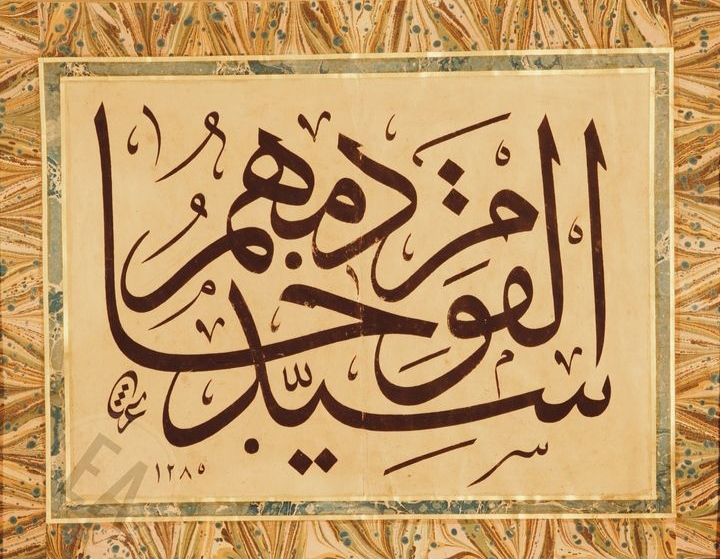 سيّد القوم خادمهم
عزت
١٢٨٥
EA